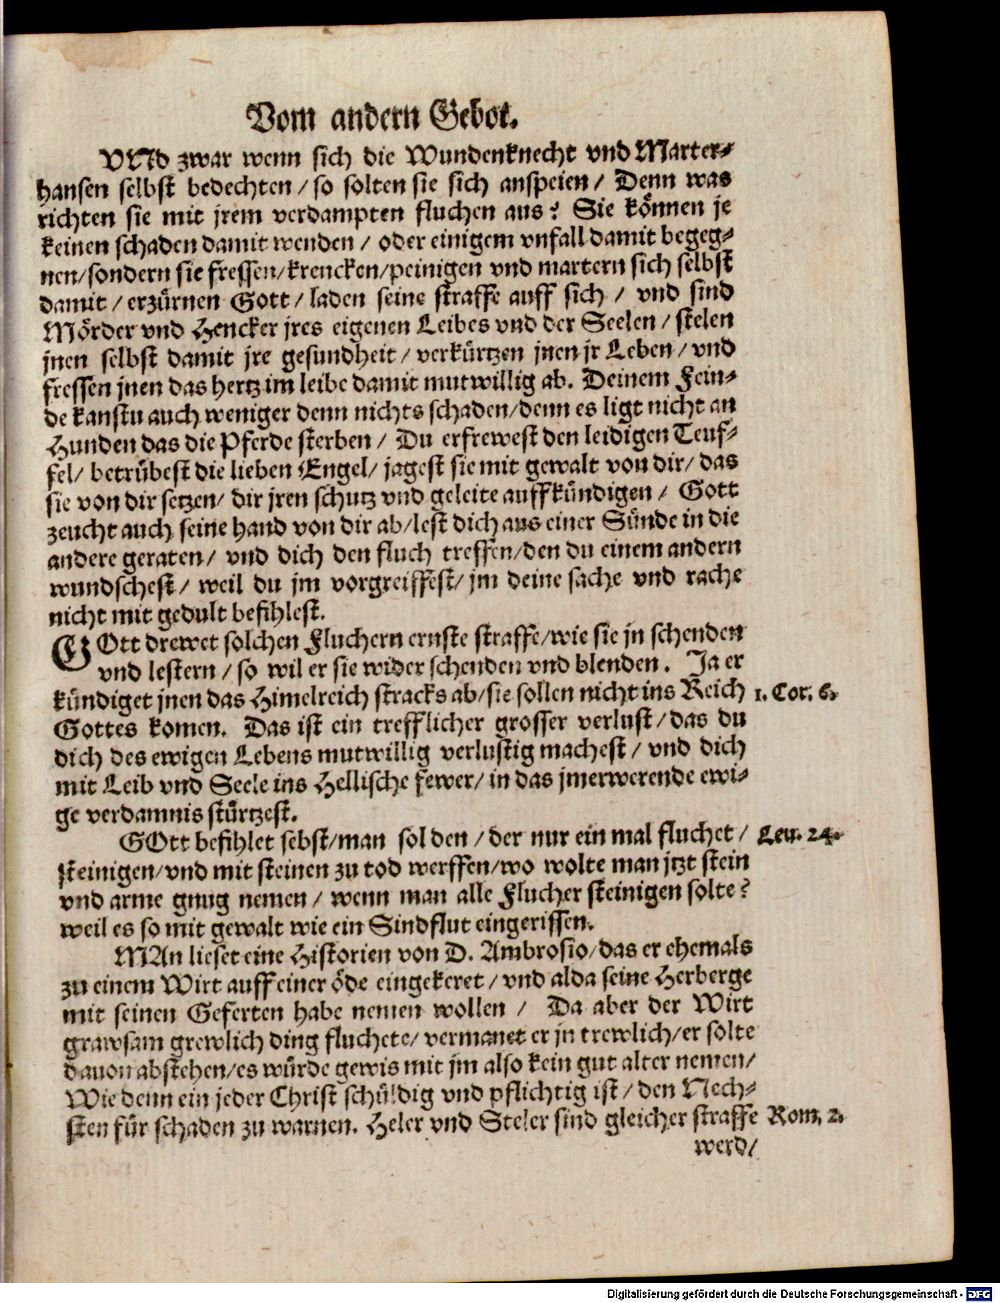 Vom andern Gebot.
VNd zwar wenn sich die Wundenknecht vnd Marter⸗
hansen selbst bedechten / so solten sie sich anspeien / Denn was
richten sie mit jrem verdampten fluchen aus? Sie können je
keinen schaden damit wenden / oder einigem vnfall damit begeg⸗
nen/sondern sie fressen/krencken/peinigen vnd martern sich selbst
damit / erzürnen Gott / laden seine straffe auff sich / vnd sind
Mörder vnd Hencker jres eigenen Leibes vnd der Seelen / stelen
jnen selbst damit jre gesundheit / verkürtzen jnen jr Leben / vnd
fressen jnen das hertz im leibe damit mutwillig ab. Deinem Fein⸗
de kanstu auch weniger denn nichts schaden/denn es ligt nicht an
Hunden das die Pferde sterben / Du erfrewest den leidigen Teuf⸗
fel/ betrübest die lieben Engel/ jagest sie mit gewalt von dir/ das
sie von dir setzen/ dir jren schutz vnd geleite auffkündigen / Gott
zeucht auch seine hand von dir ab/lest dich aus einer Sünde in die
andere geraten/ vnd dich den fluch treffen/den du einem andern
wundschest/ weil du jm vorgreiffest/ jm deine sache vnd rache
nicht mit gedult befihlest.
GOtt drewet solchen Fluchern ernste straffe/wie sie jn schenden
vnd lestern / so wil er sie wider schenden vnd blenden. Ja er
kündiget jnen das Himelreich stracks ab/sie sollen nicht ins Reich 1. Cor. 6.
Gottes komen. Das ist ein trefflicher grosser verlust/das du
dich des ewigen Lebens mutwillig verlustig machest/ vnd dich
mit Leib vnd Seele ins Hellische fewer/ in das jmerwerende ewi⸗
ge verdamnis stürtzest.
GOtt befihlet sebst/man sol den / der nur ein mal fluchet / Leu. 24.
steinigen/vnd mit steinen zu tod werffen/wo wolte man jtzt stein
vnd arme gnug nemen / wenn man alle Flucher steinigen solte?
weil es so mit gewalt wie ein Sindflut eingerissen.
MAn lieset eine Historien von D. Ambrosio/das er ehemals
zu einem Wirt auff einer öde eingekeret / vnd alda seine Herberge
mit seinen Geferten habe nemen wollen / Da aber der Wirt
grawsam grewlich ding fluchete/ vermanet er jn trewlich/er solte
dauon abstehen/es würde gewis mit jm also kein gut alter nemen/
Wie denn ein jeder Christ schüldig vnd pflichtig ist / den Nech⸗
sten für schaden zu warnen. Heler vnd Steler sind gleicher straffe Rom. 2.
werd/
Digitalisierung gefördert durch die Deutsche Forschungsgemeinschaft - DFG